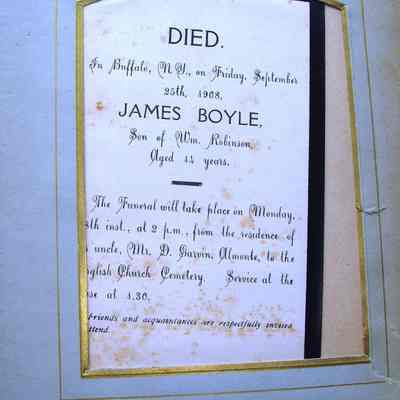 DIED.
In Buffalo, N.Y., on Friday, September
25th, 1908,
JAMES BOYLE,
Son of Wm. Robinson,
Aged years.
The Funeral will take place on Monday,
8th inst., at 2 p.m., from the residence of
uncle, Mr. D. Garvin, Almonte, to the
nglish Church Cemetery. Service at the
se at 1.30.
friends and acquaintances are respectfully invited
ttend.